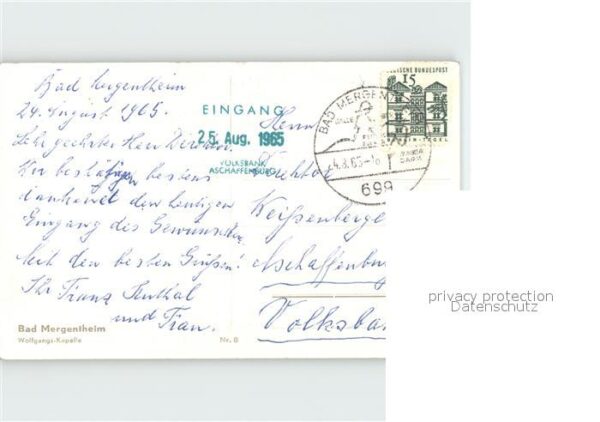 Bad Mergentheim
24. August 1965.
Sehr geehrter Herr Direktor!
Wir bestätigen bestens
dankend den heutigen
Eingang des Gewünschten.
Mit den besten Grüßen!
Ihr Franz
und Frau.
Bad Mergentheim
Wolfgangs-Kapelle
Nr. 8
EINGANG
25. Aug. 1965
VOLKSBANK
ASCHAFFENBURG
Herrn
Direktor
Weißenberge
Aschaffenburg
Volksba
BAD MERGEN
699
DEUTSCHE BUNDESPOST
15
privacy protection
Datenschutz